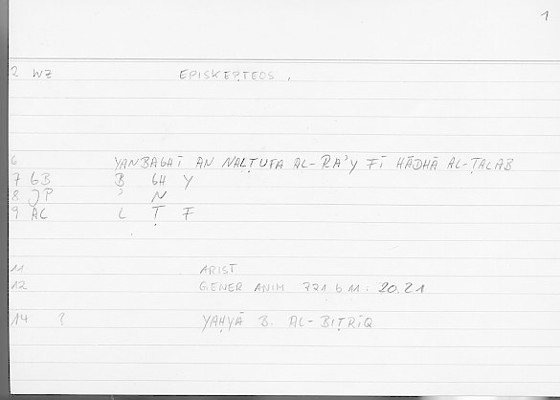 1
2 WZ EPISKEPTEOS .
6 YANBAGHĪ AN NALṬUFA AL-RA'Y FĪ HĀDHĀ AL-ṬALAB
7 GB B GH Y
8 JP ʾ N
9 AL L Ṭ F
11 ARIST
12 GENER ANIM 721 b M. 20.21
14 ? YAḤYĀ B. AL-BIṬRĪQ